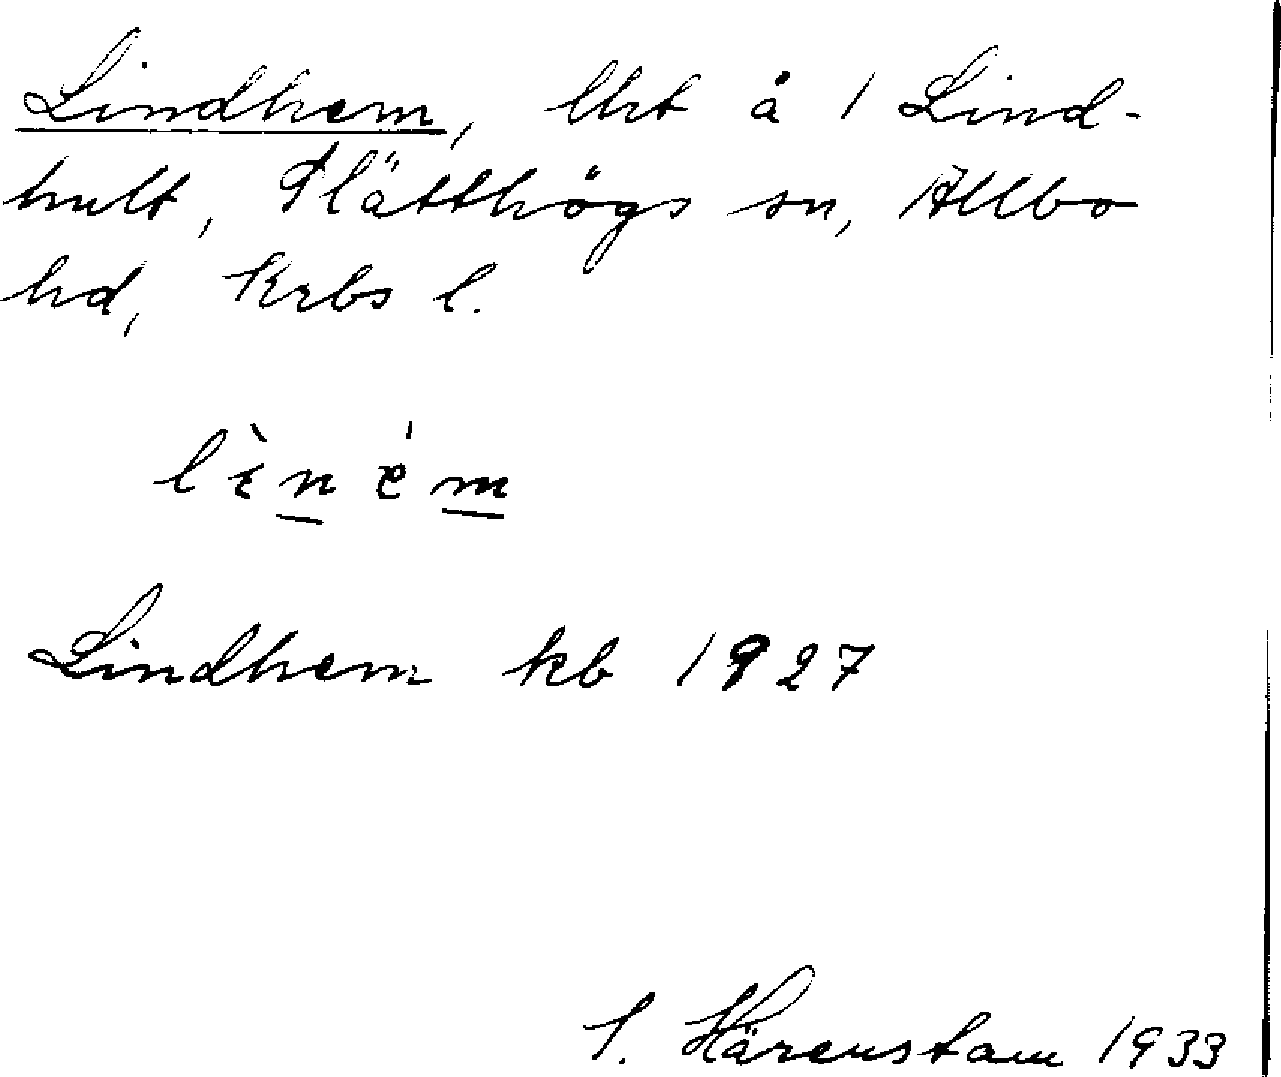 Lindhem, lht å 1 Lind-
hult, Slätthögs sn, Allbo
hd, Krbs l.
lìném
Lindhem kb 1927
Härenstam 1933